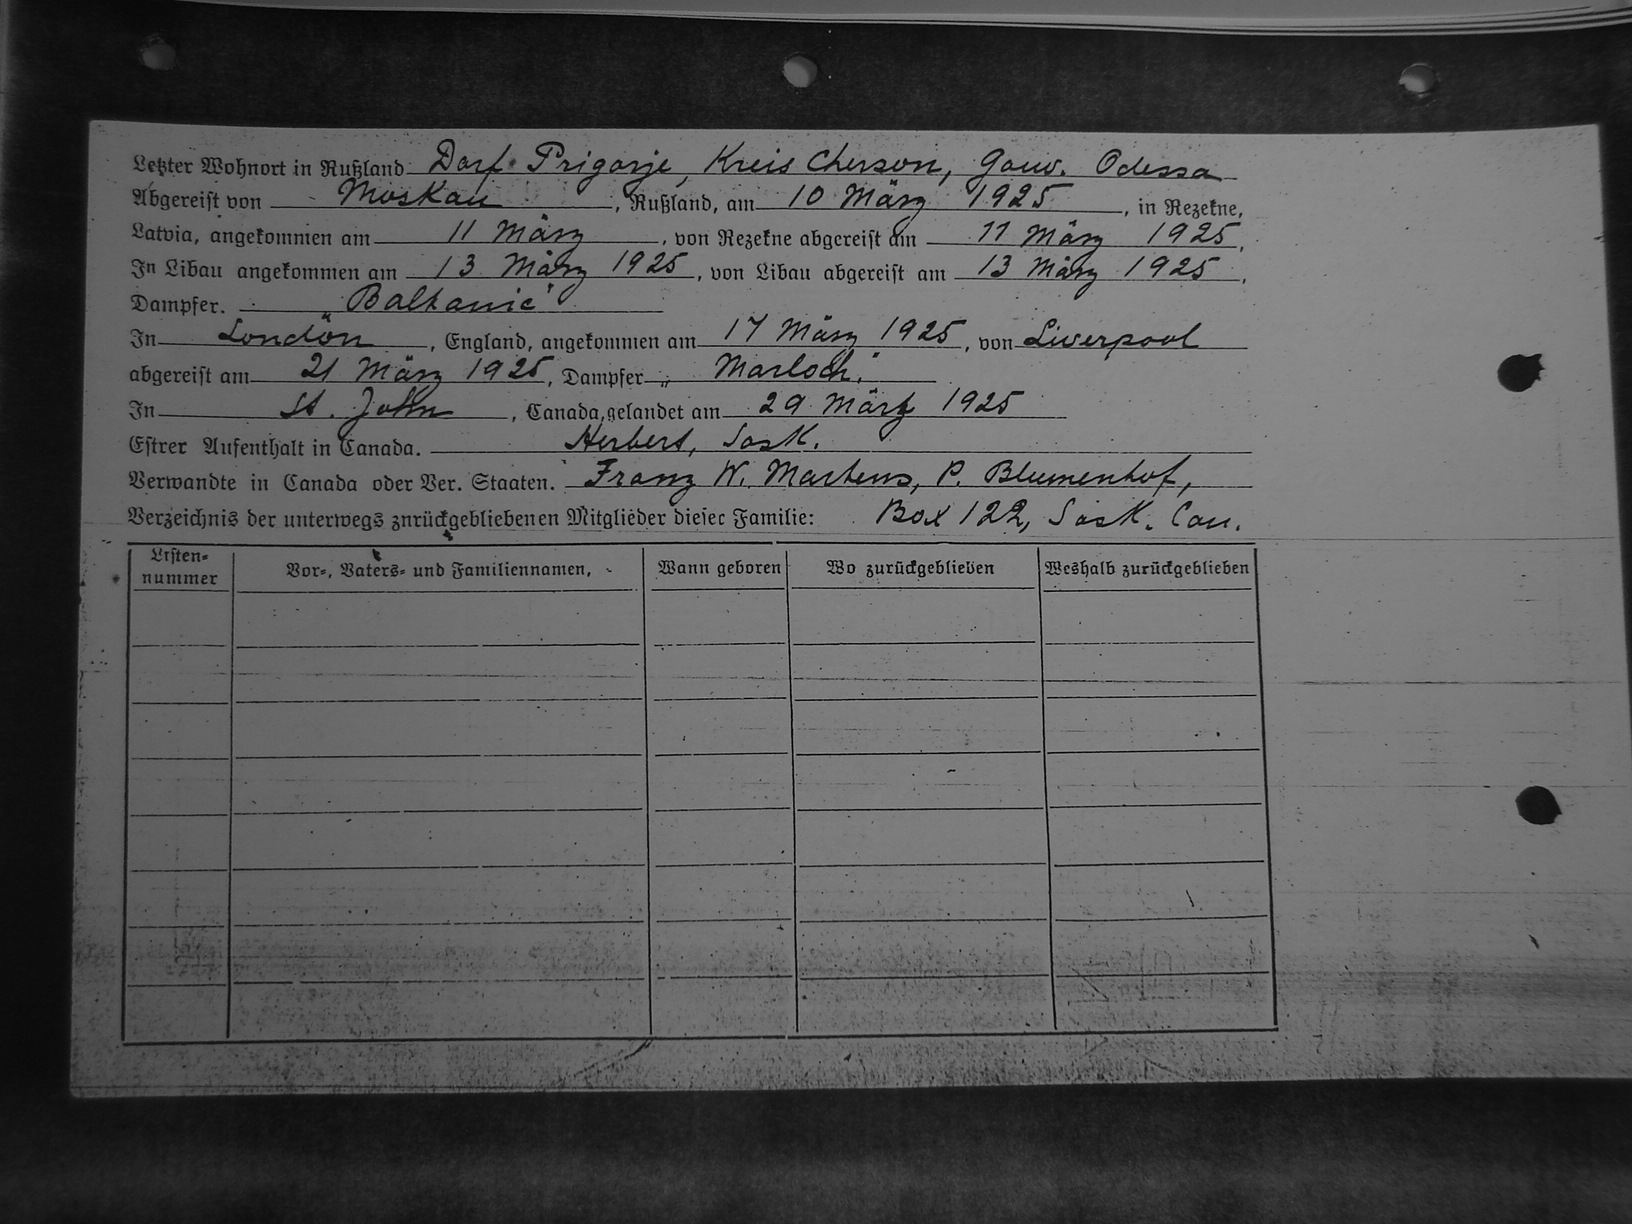 Letzter Wohnort in Rußland Dorf Prigorje, Kreis Cherson, Gouv. Odessa
Abgereist von Moskau, Rußland, am 10 März 1925, in Rezekne,
Latvia, angekommen am 11 März, von Rezekne abgereist am 11 März 1925.
In Libau angekommen am 13 März 1925, von Libau abgereist am 13 März 1925.
Dampfer. „Baltanic"
In London, England, angekommen am 17 März 1925, von Liverpool
abgereist am 21 März 1925, Dampfer „Marloch."
In St. John, Canada, gelandet am 29 März 1925
Estrer Aufenthalt in Canada. Herbert, Sask.
Verwandte in Canada oder Ver. Staaten. Franz W. Martens, P. Blumenhof,
Verzeichnis der unterwegs znrückgebliebenen Mitglieder diesec Familie: Box 122, Sask. Can.
Listen-
nummer
Vor-, Vaters- und Familiennamen,
Wann geboren
Wo zurückgeblieben
Weshalb zurückgeblieben